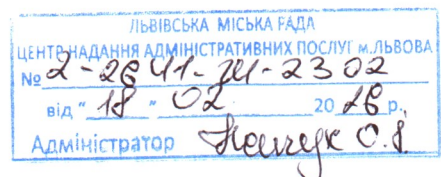 ЛЬВІВСЬКА МІСЬКА РАДА
ЦЕНТР НАДАННЯ АДМІНІСТРАТИВНИХ ПОСЛУГ м.ЛЬВОВА
№ 2-26
від " 18 " 02 20 26 р.
Адміністратор О.